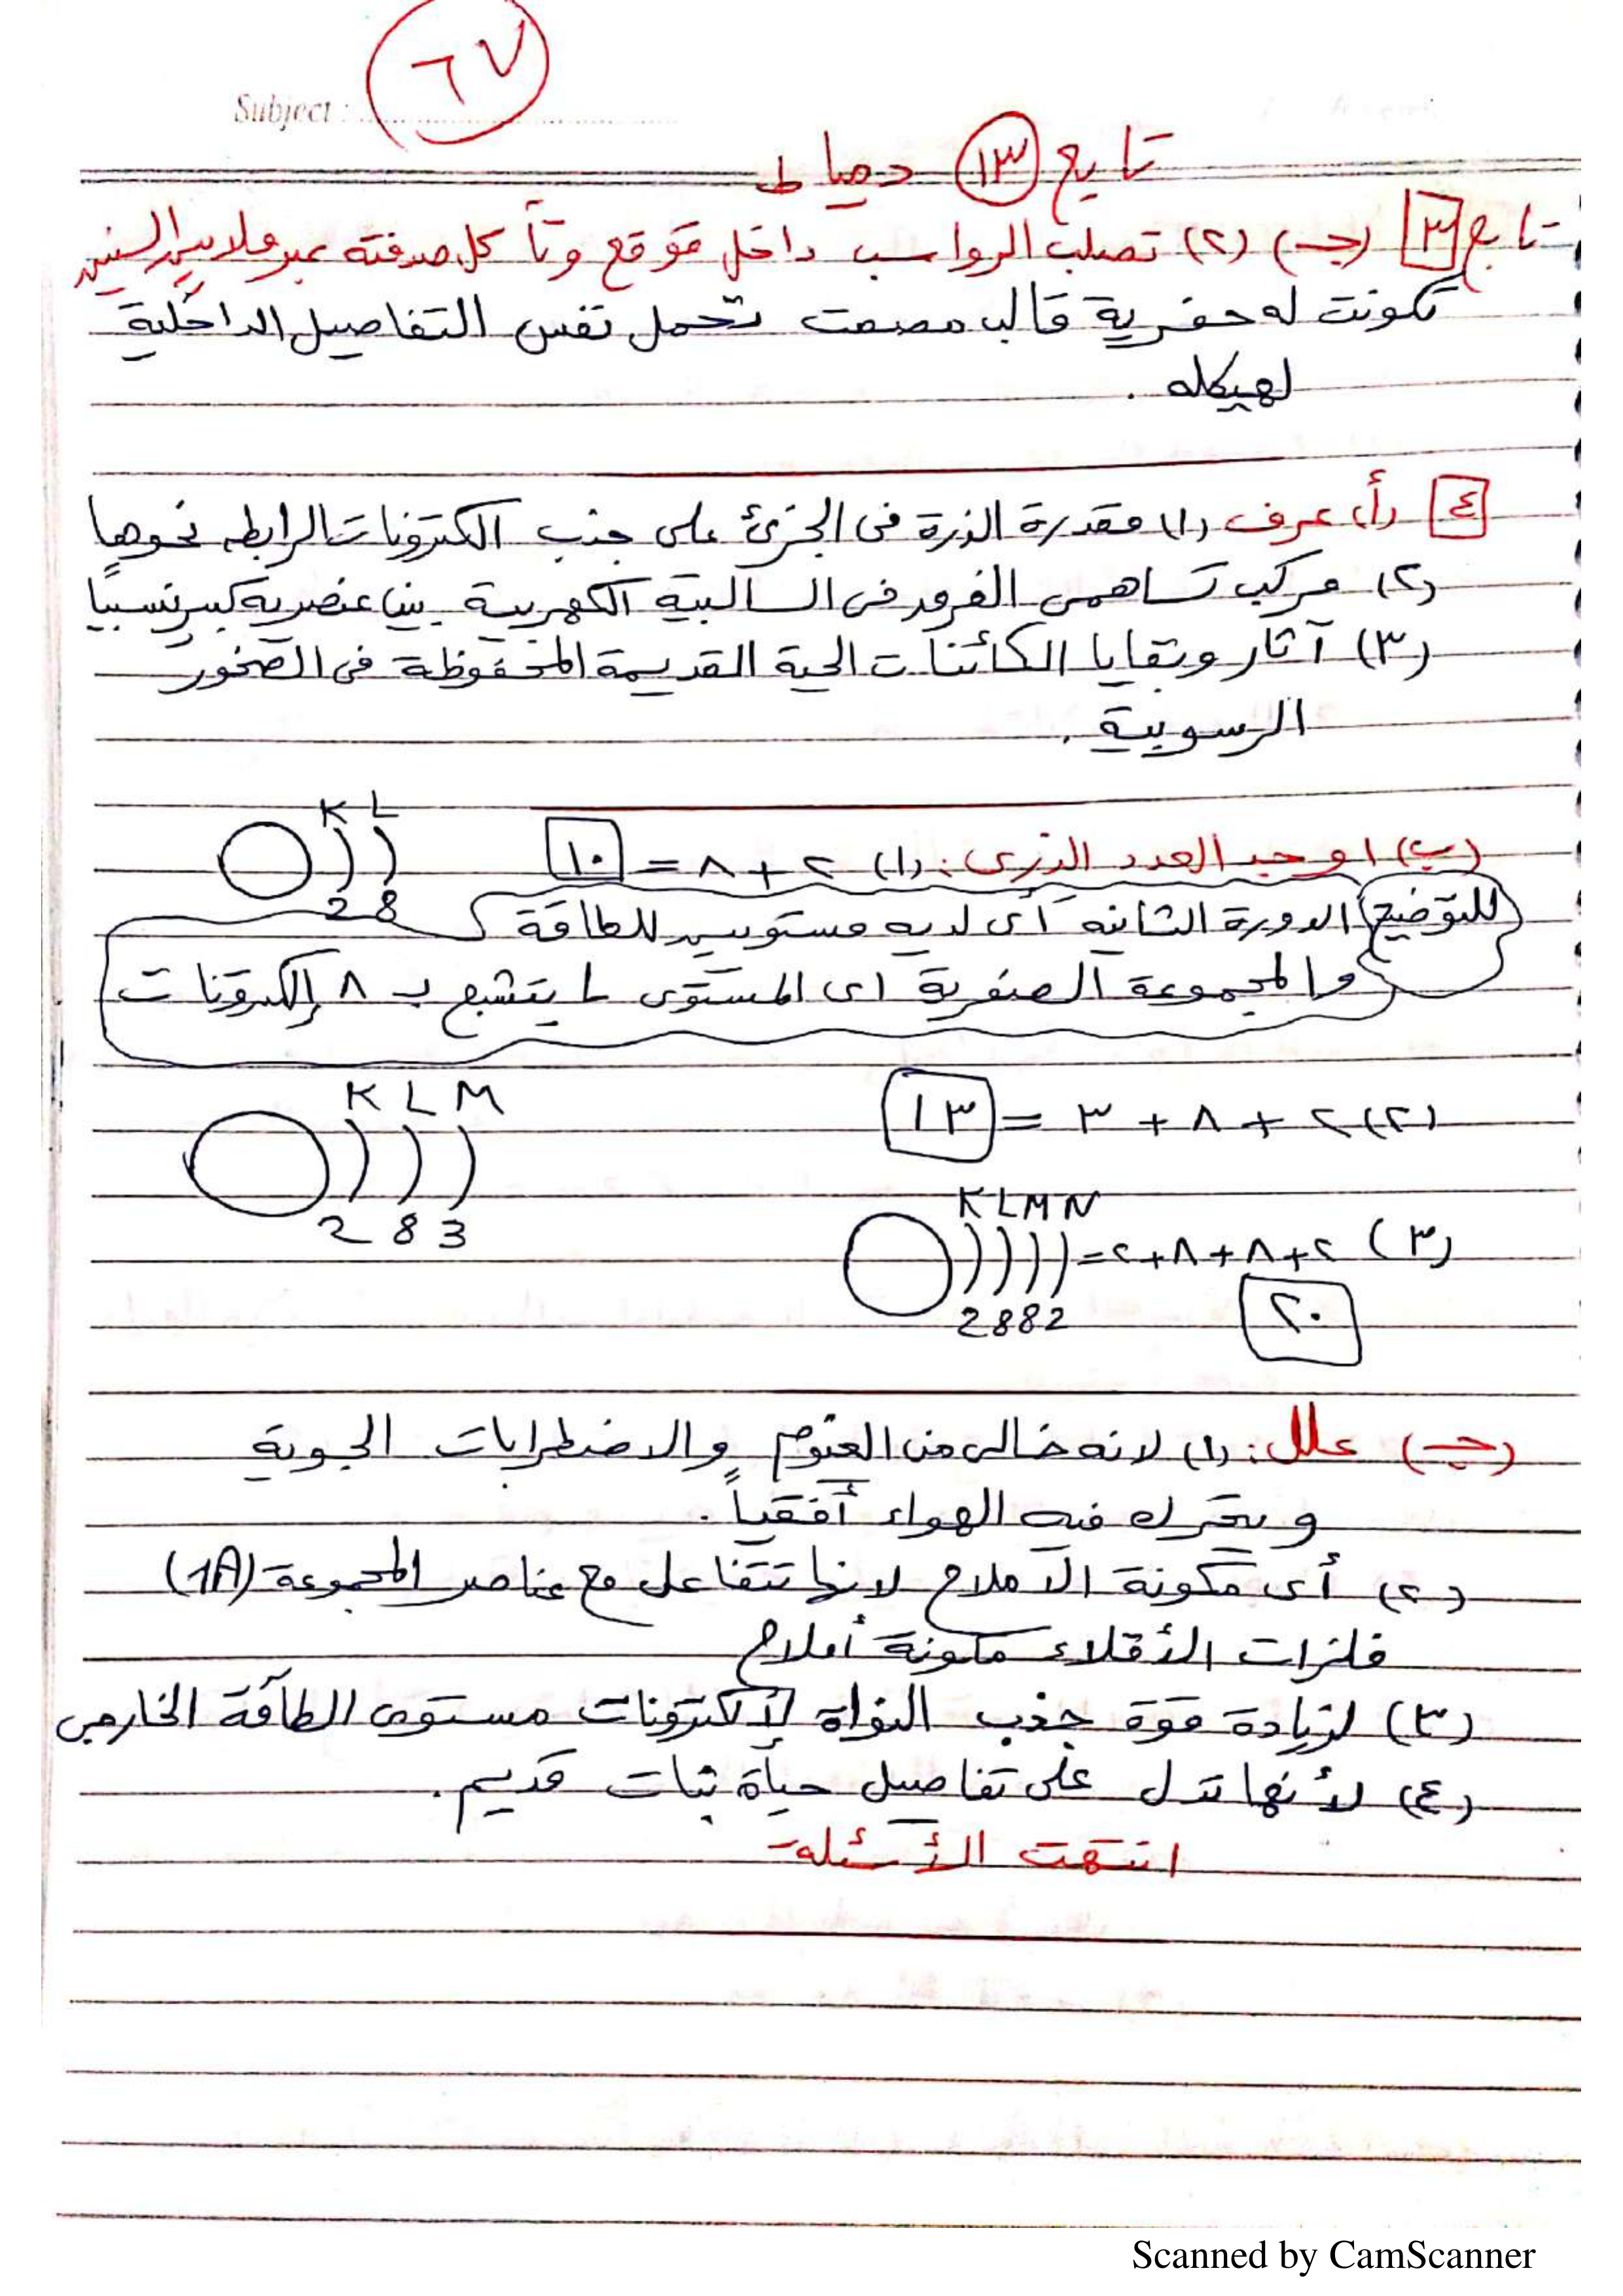 Subject :
٦٧
تابع ١٣ دمياط
تابع ٣ (جـ) (٢) تصلب الرواسب داخل قوقع وتآكل صدفته عبر ملايين السنين
تكونت له حفرية قالب مصمت تحمل نفس التفاصيل الداخلية
لهيكله .
٤ (أ) عرف (١) مقدرة الذرة فى الجزئ على جذب الكترونات الرابطه نحوها
(٢) مركب تساهمى الفرق فى السالبية الكهربية بين عنصريه كبير نسبياً
(٣) آثار وبقايا الكائنات الحية القديمة المحفوظة فى الصخور
الرسوبية .
(ب) اوجد العدد الذرى : (١) ٢ + ٨ = ١٠
K L
2 8
للتوضيح الدورة الثانيه أى لديه مستويين للطاقة
والمجموعة الصفرية اى المستوى L يتشبع بـ ٨ إلكترونات
(٢) ٢ + ٨ + ٣ = ١٣
K L M
2 8 3
(٣) ٢+٨+٨+٢=
K L M N
2 8 8 2
٢٠
(جـ) علل : (١) لانه خالى من الغيوم والاضطرابات الجوية
و يتحرك فيه الهواء أفقياً .
(٢) أى مكونة الأملاح لانها تتفاعل مع عناصر المجموعة (1A)
فلزات الأقلاء مكونة أملاح
(٣) لزيادة قوة جذب النواة لإلكترونات مستوى الطاقة الخارجى
(٤) لأنها تدل على تفاصيل حياة نبات قديم .
انتهت الأسئلة
Scanned by CamScanner